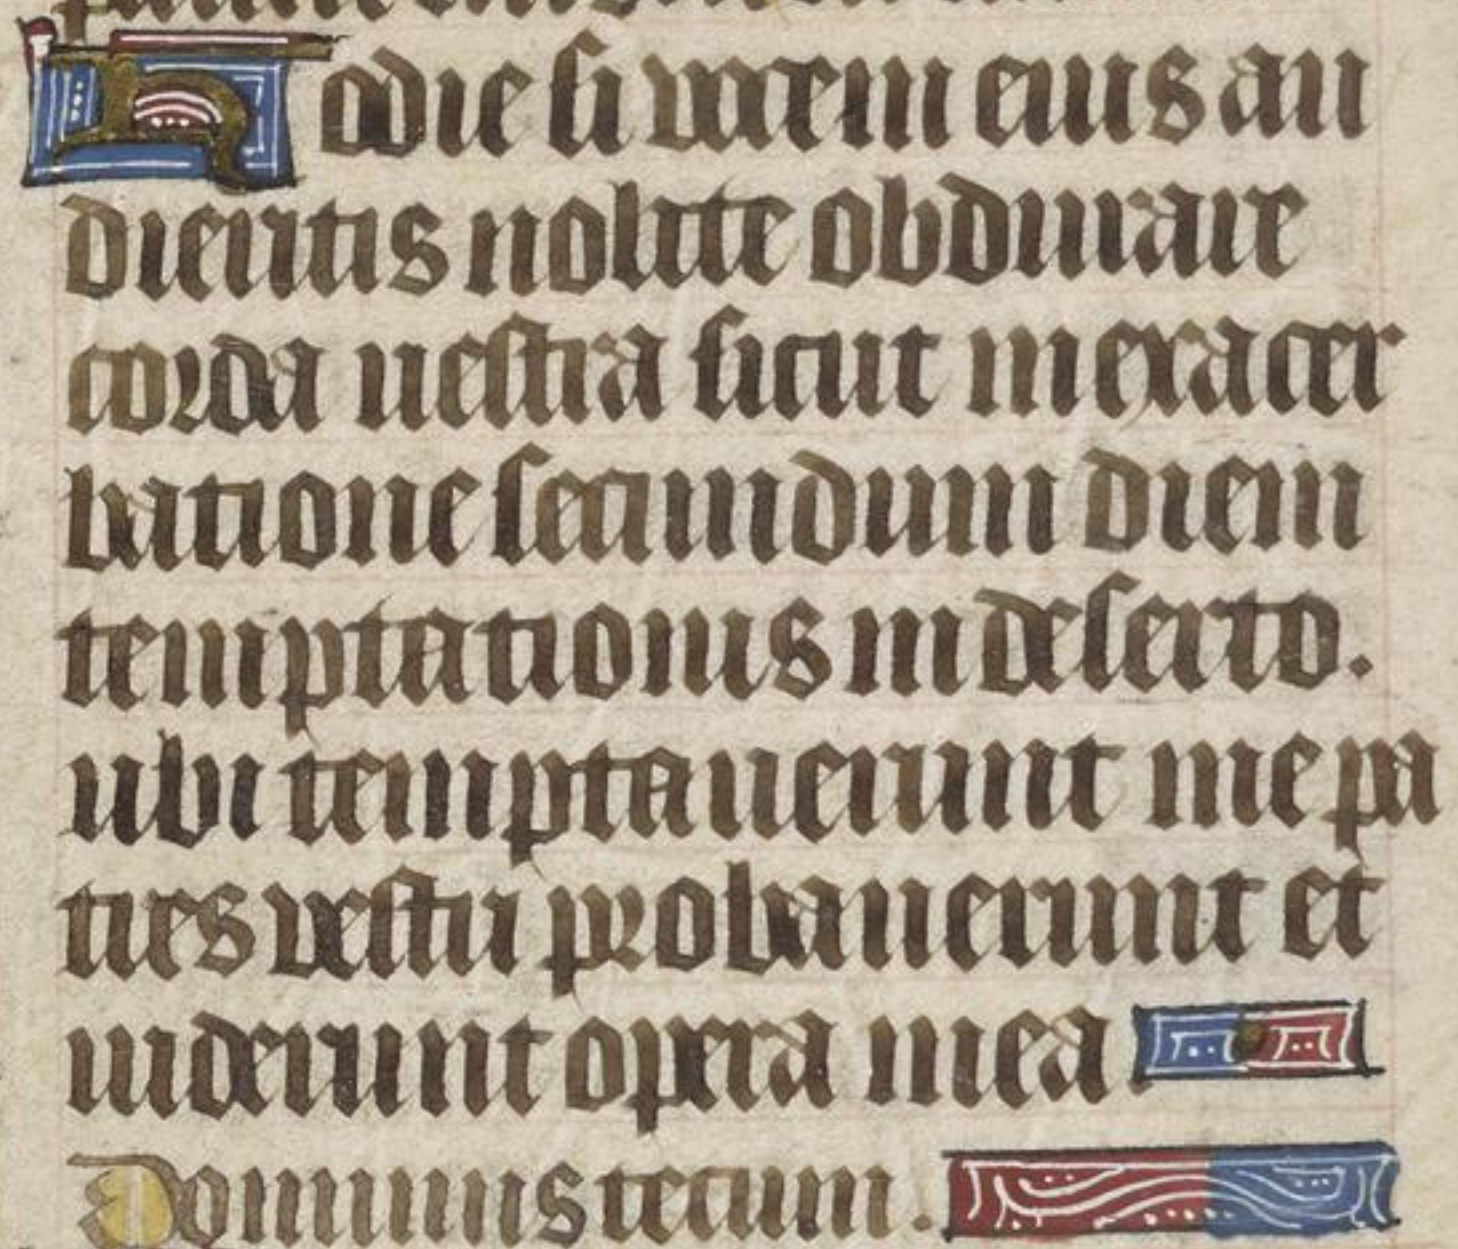 Hodie si vocem eius au
dieritis nolite obdurare
corda uestra sicut in exacer
batione secundum diem
temptationis in deserto.
ubi temptauerunt me pa
tres vestri probauerunt et
uiderunt opera mea
Dominus tecum.